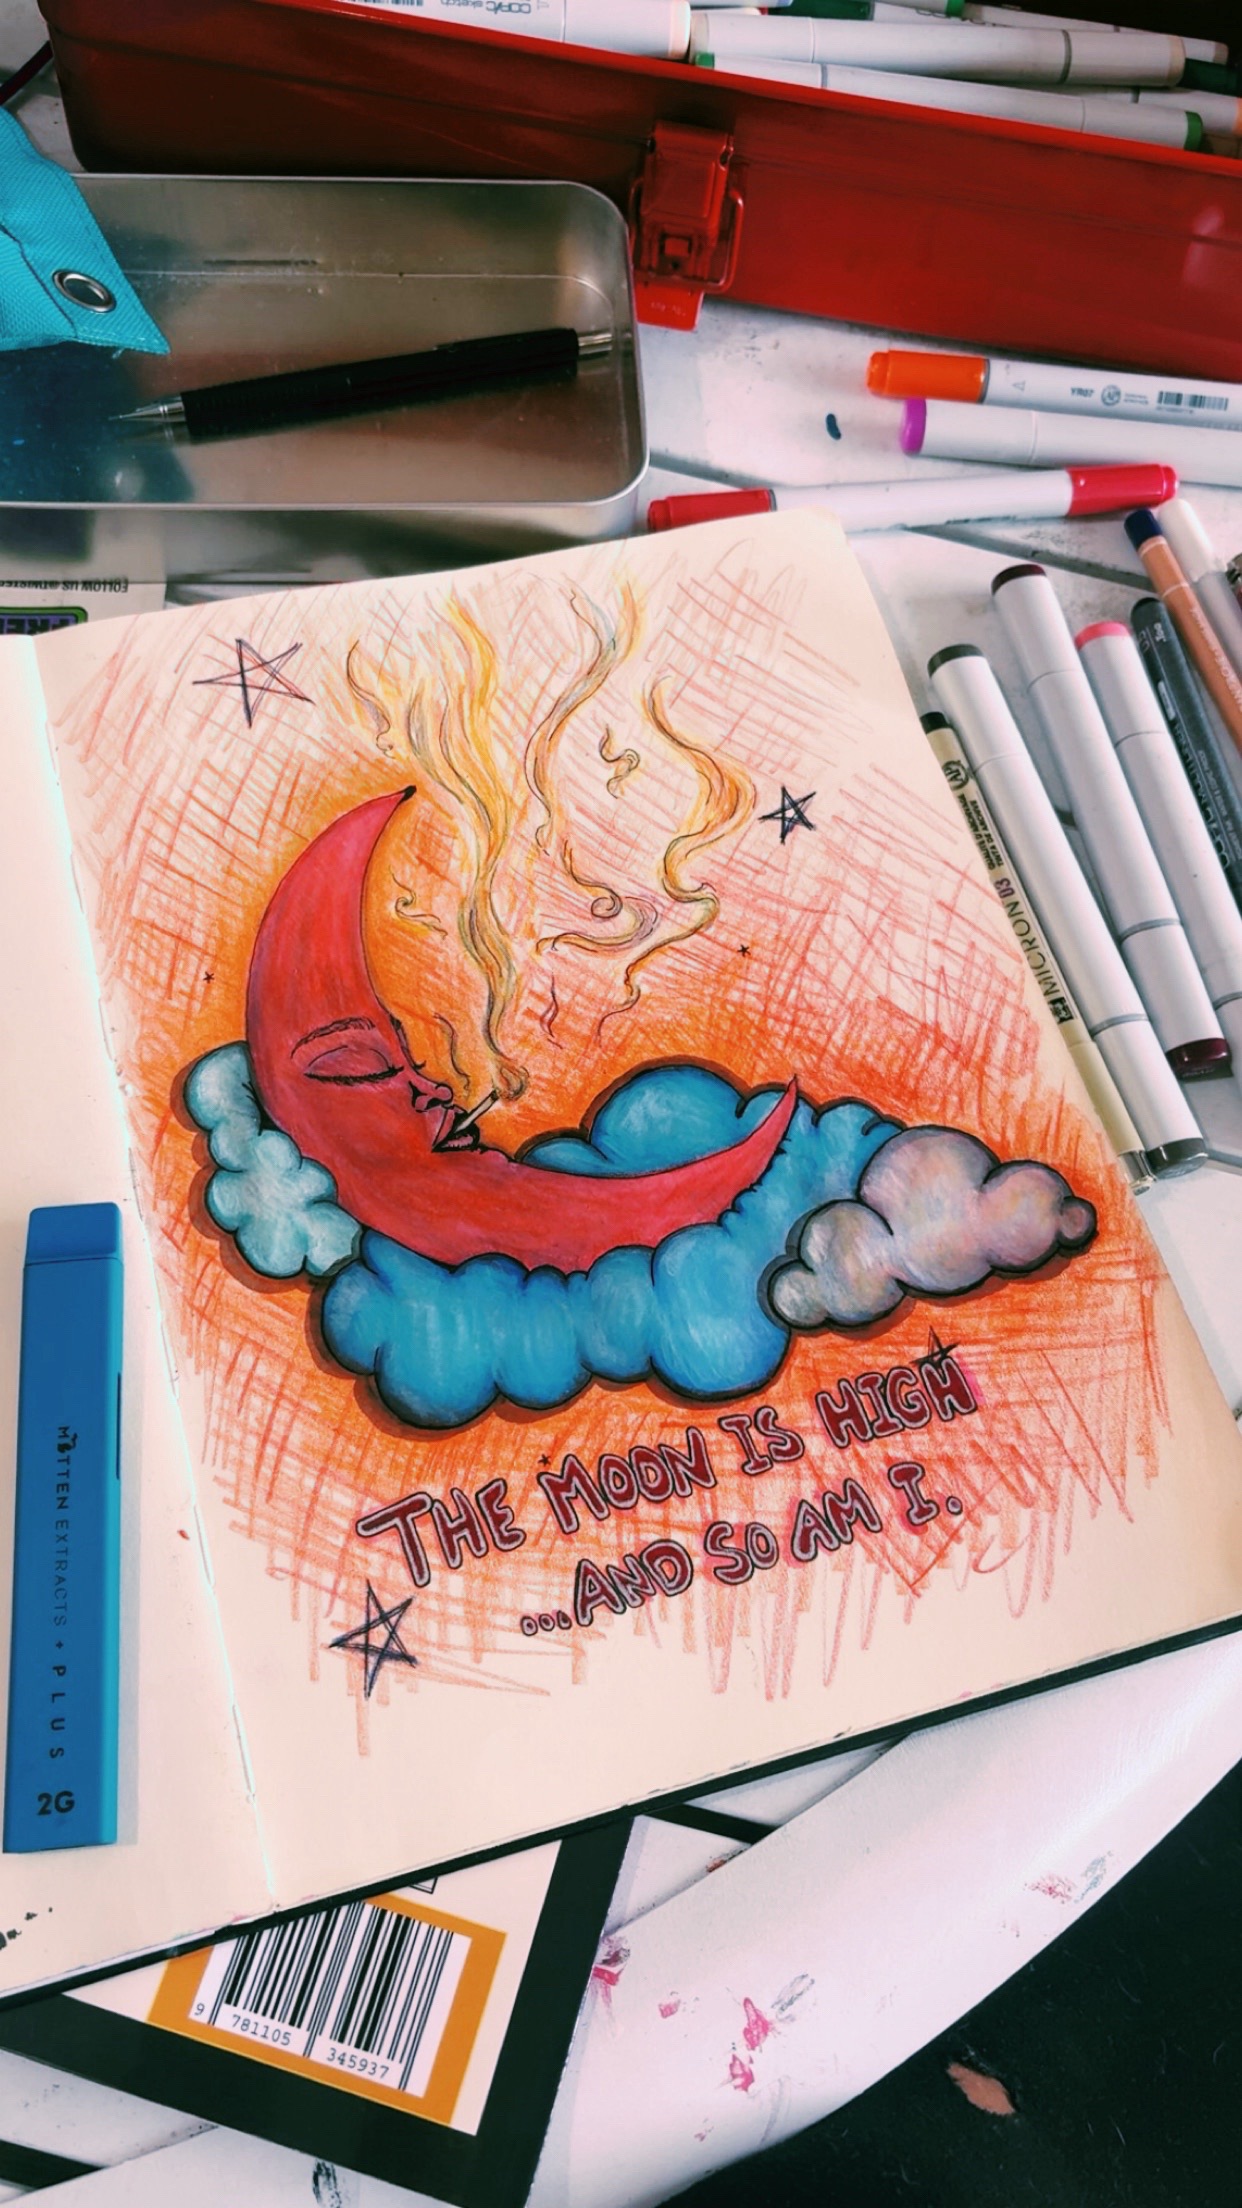 COPIC sketch
YR07
FOLLOW US @TWISTE
FREE
MICRON 03
THE MOON IS HIGH
...AND SO AM I.
MITTEN EXTRACTS + PLUS
2G
9 781105 345937